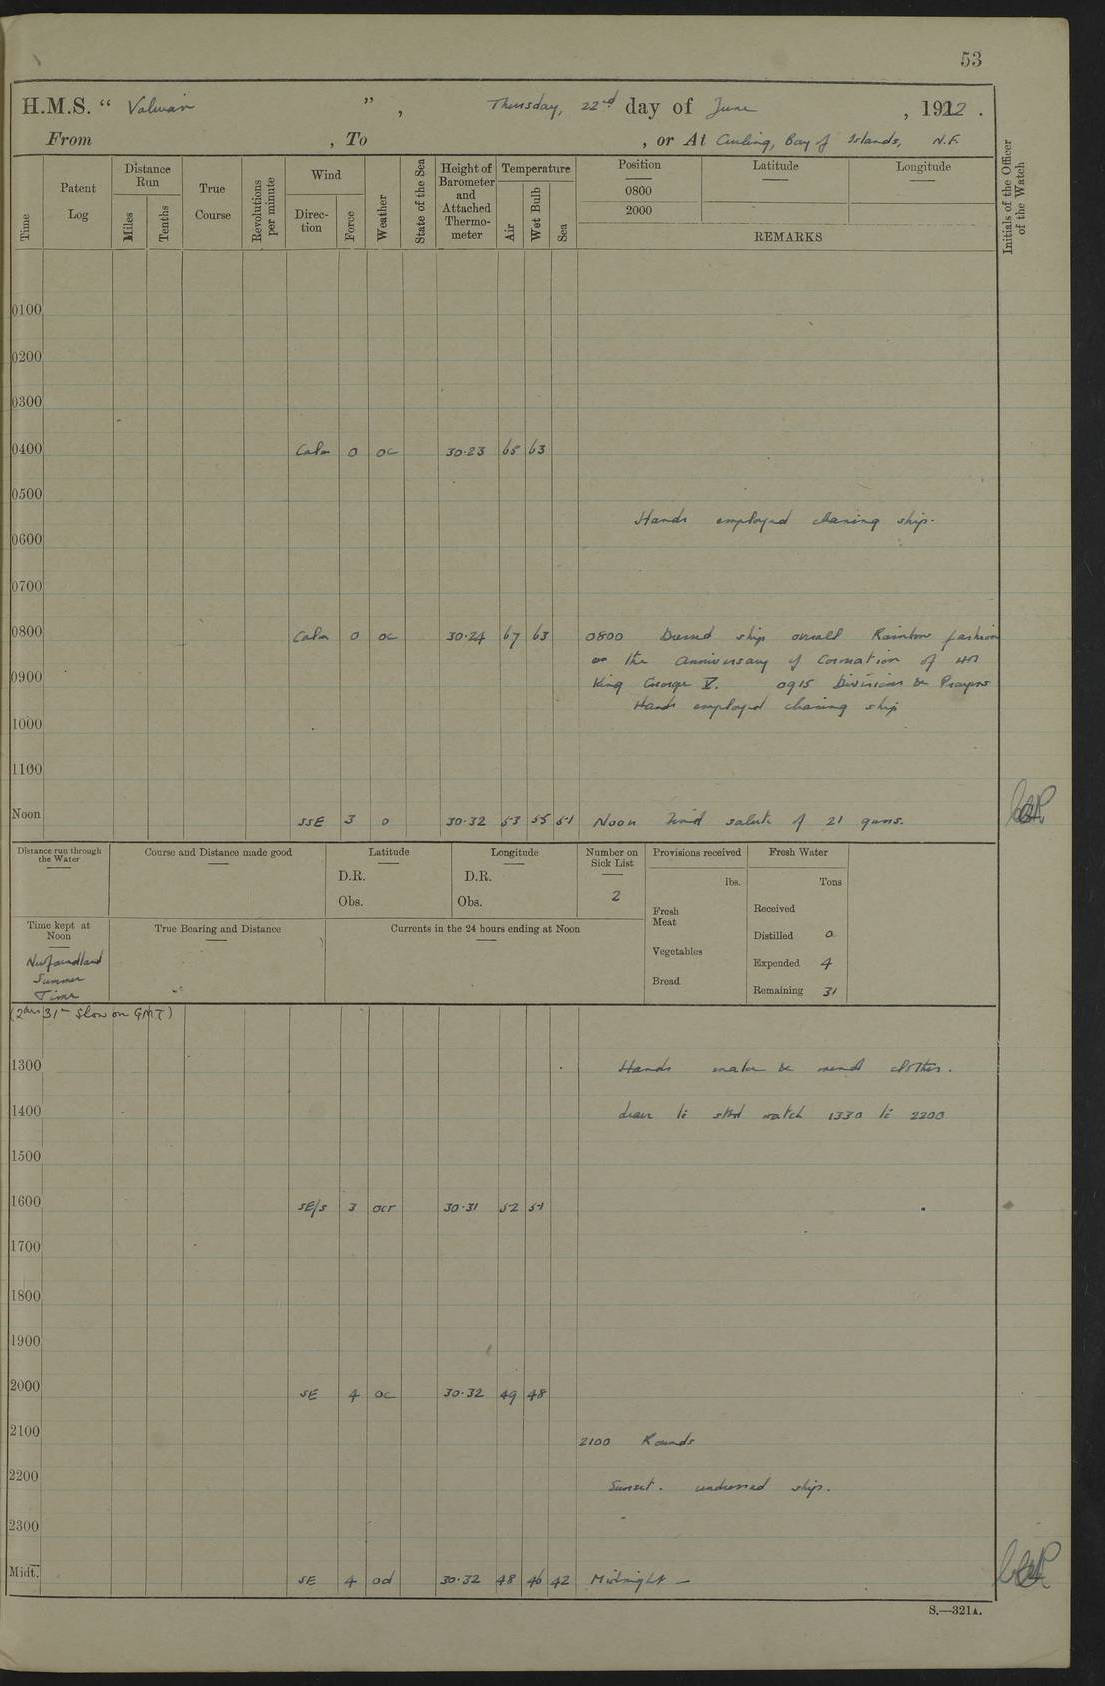 53
H.M.S. “ Valerian ” , Thursday, 22nd day of June , 1922 .
From , To , or At Curling, Bay of Islands, N.F.
Time
Patent Log
Distance Run
Miles
Tenths
True Course
Revolutions per minute
Wind
Direc-tion
Force
Weather
State of the Sea
Height of Barometer and Attached Thermo-meter
Temperature
Air
Wet Bulb
Sea
Position
0800
2000
Latitude
Longitude
REMARKS
Initials of the Officer of the Watch
0100
0200
0300
0400 Calm 0 oc 30·23 65 63
0500
Hands employed cleaning ship.
0600
0700
0800 Calm 0 oc 30·24 67 63 0800 Dressed ship overall Rainbow fashion
on the anniversary of Coronation of HM
0900 King George V. 0915 Divisions & Prayers
Hands employed cleaning ship
1000
1100
Noon SSE 3 o 30·32 53 55 51 Noon Fired salute of 21 guns.
Distance run through the Water
Course and Distance made good
Latitude
D.R.
Obs.
Longitude
D.R.
Obs.
Number on Sick List
2
Provisions received
lbs.
Fresh Meat
Vegetables
Bread
Fresh Water
Tons
Received
Distilled 0
Expended 4
Remaining 31
Time kept at Noon
Newfoundland
Summer
Time
(2hrs 31m Slow on GMT)
True Bearing and Distance
Currents in the 24 hours ending at Noon
1300 Hands make & mend clothes.
1400 leave to stbd watch 1330 to 2200
1500
1600 SE/S 3 ocr 30·31 52 51
1700
1800
1900
2000 SE 4 oc 30·32 49 48
2100 2100 Rounds
2200 Sunset. undressed ship.
2300
Midt. SE 4 od 30·32 48 46 42 Midnight —
S.—321A.